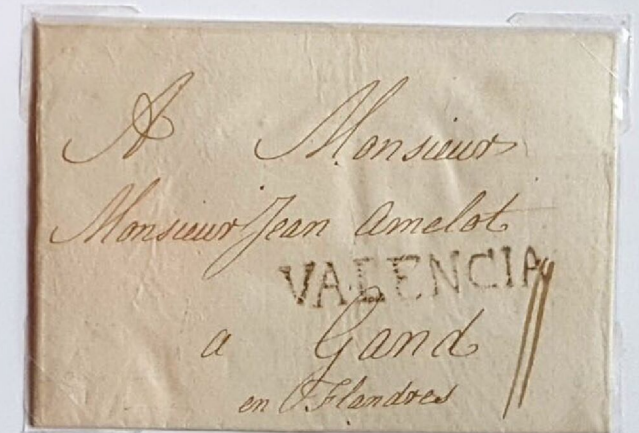 A Monsieur
Monsieur Jean Amelot
VALENCIA
a Gand
en Flandres